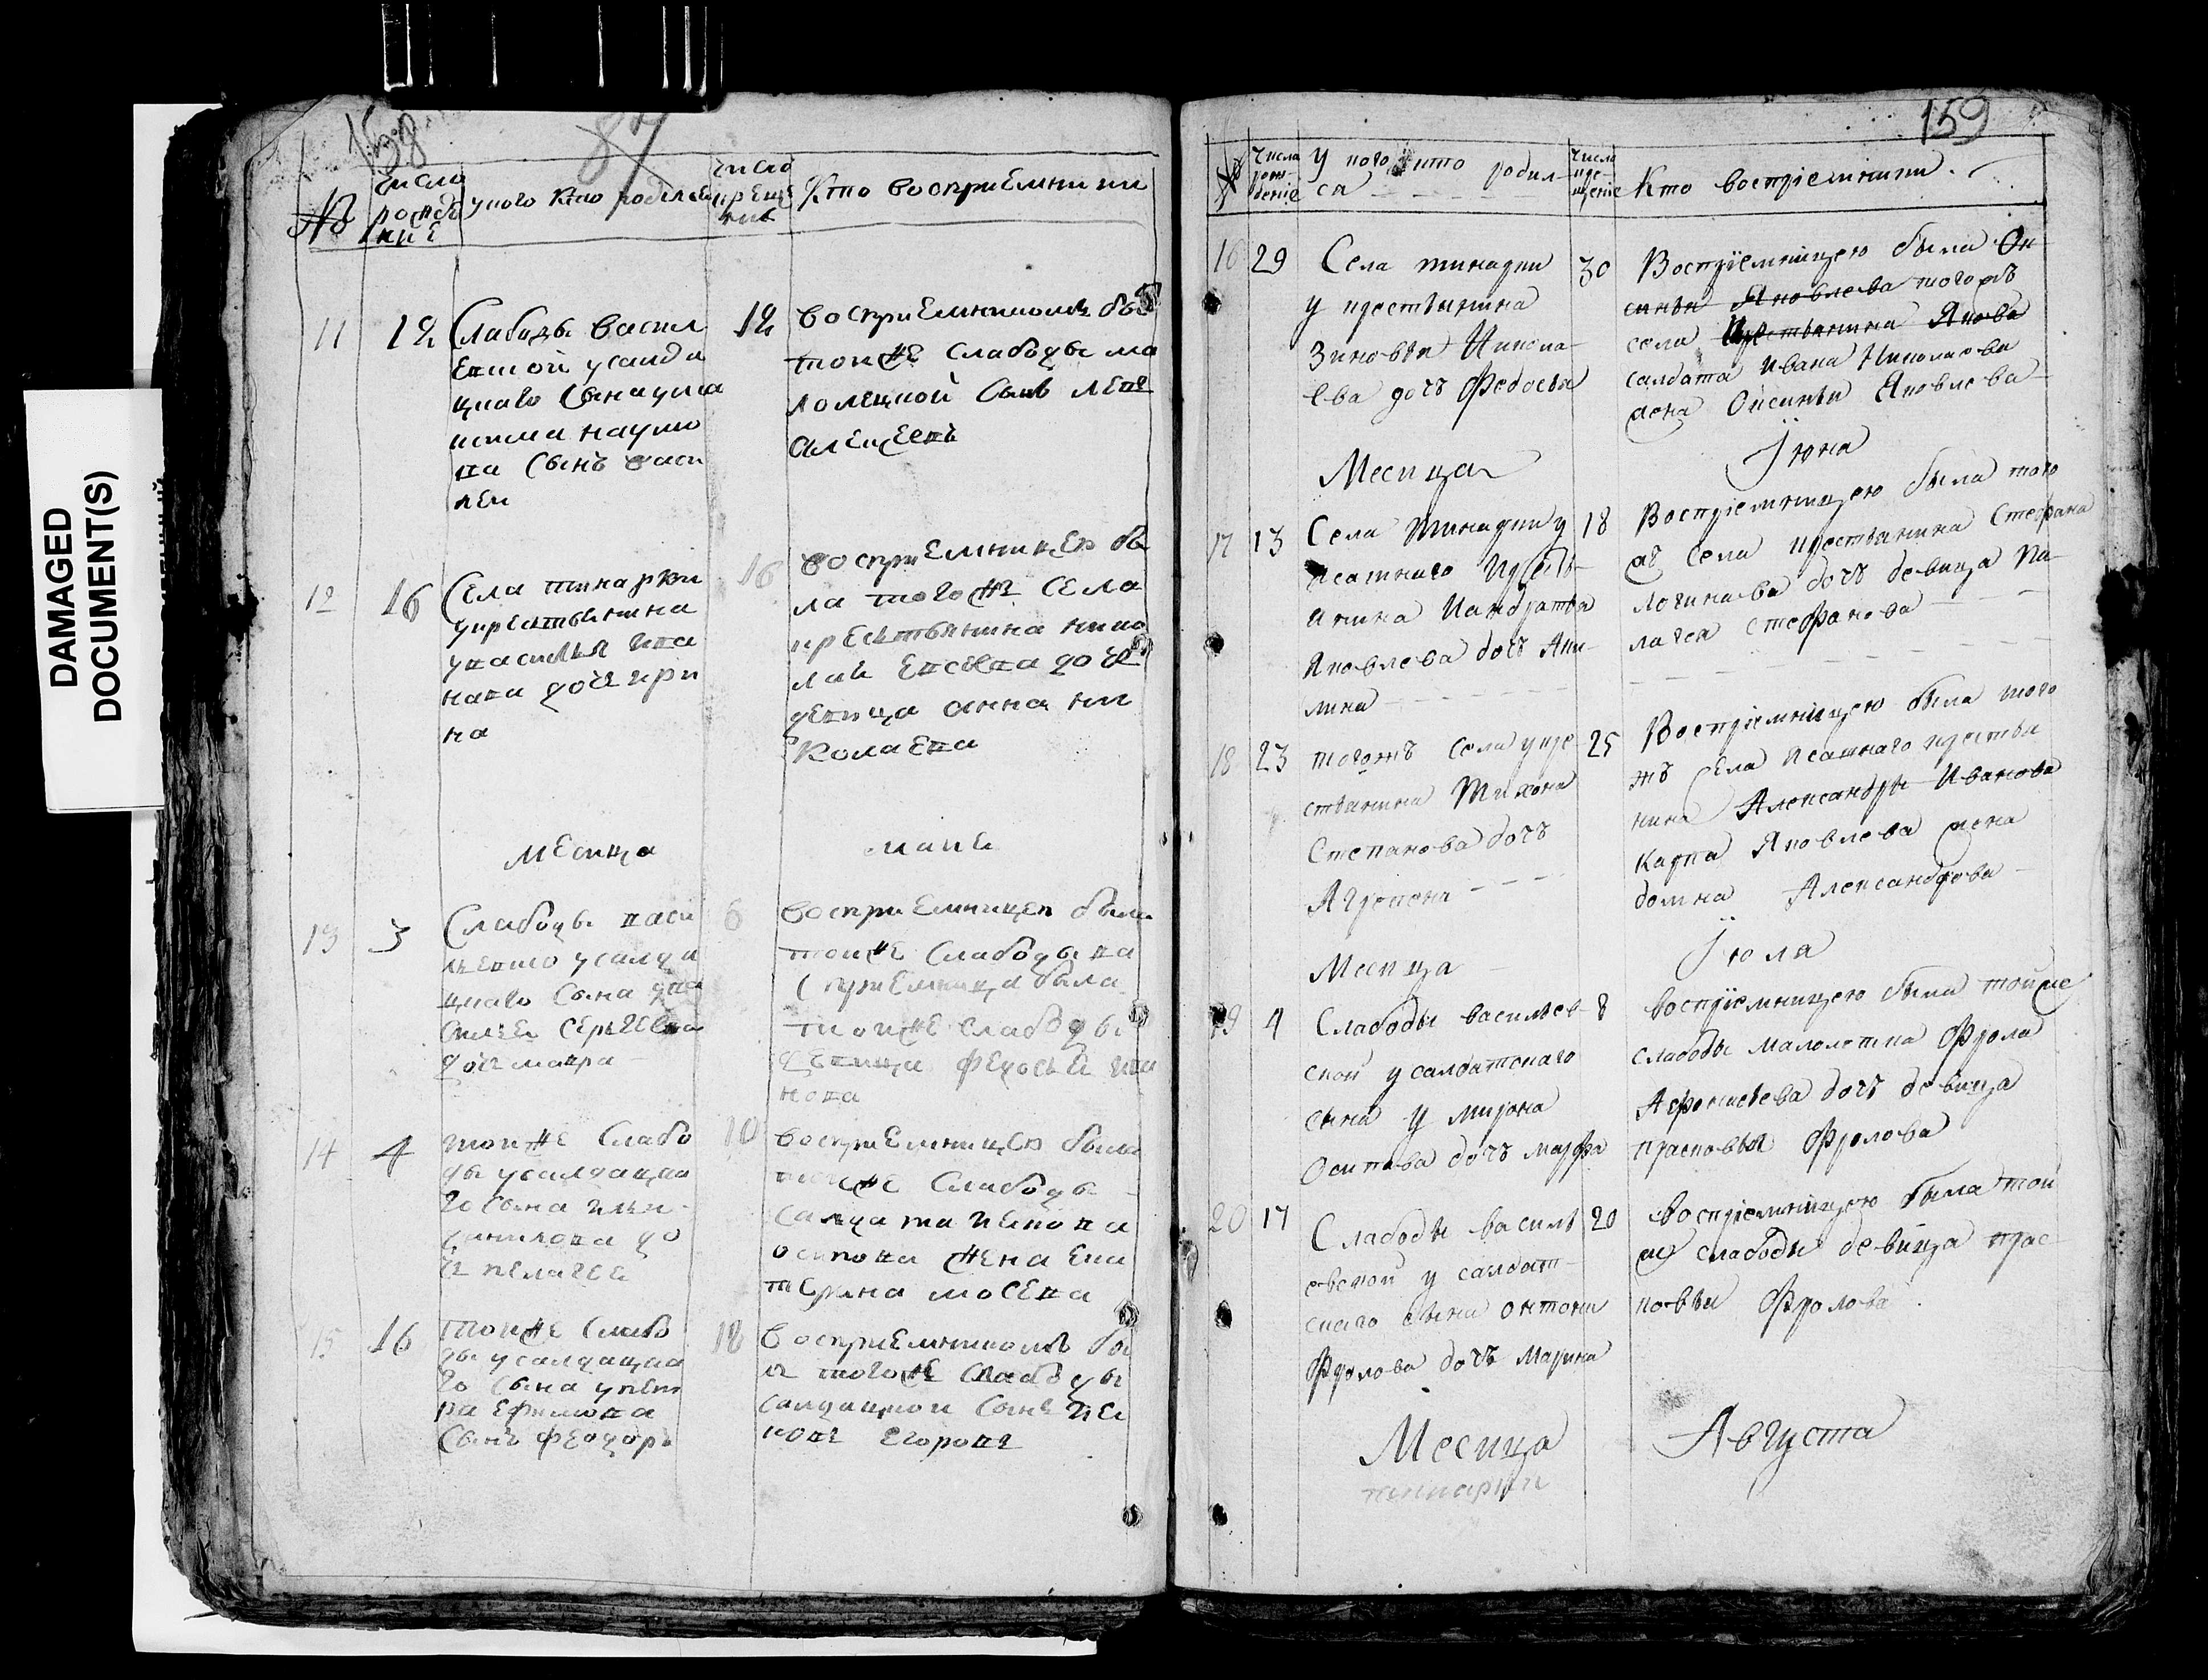 DAMAGED
DOCUMENT(S)
158
87
№
число рожде ние
у кого кто родился
число креще ния
Кто восприемники
11
12
Слабоды васил
евской у салда
цкаго сына ума
ксима наумо
ва сынъ васи
леи
12
восприемникомъ бы
тоиже слабоды ма
лолецкой сынъ левъ
алексеевъ
12
16
Села тинарки
укрестьянина
увасилья ива
нова дочь ири
на
16
восприемницею бы
ла тогоже села
крестьянина нико
лаи евсева дочь
девица анна ни
колаева
Месяца
маия
13
3
Слабоды васи
левско у салда
цкаго сына ува
силея сергеева
дочь мавра
6
восприемницею была
тоиже слабоды ва
сприемница была
тоиже слабоды
девица федосья ива
нова
14
4
тоиже слабо
ды усалдацка
го сына ильи
данилова до
чь пелагея
10
восприемницею была
тоиже слабоды
салдата
осипова жена ека
терина мосева
15
16
тоиже слабо
ды усалдацка
го сына упет
ра ефимова
сынъ феодоръ
18
восприемникомъ бы
л тогоже слабоды
салдацкои сынъ
егоровъ
159
№
числа рож- дение
у кого кто родил-
ся
числа кре- щение
Кто воспріемники.
16
29
Села тинарки
у крестьянина
Зиновья Никола-
ева дочь Федосья
30
Воспріемницею была Ок
синья Яковлева тогожъ
села Крестьянина Якова
салдата Ивана Николаева
жена Оксинья Яковлева
Месяца
Іюня
17
13
Села Тинарки у
ясашнаго Кресть-
янина Кандратья
Яковлева дочь Аку-
лина
18
Воспріемницею была того
жъ Села крестьянина Стефана
Логинова дочь девица Пе-
лагея Стефанова
18
23
тогожъ Села у кре
стьянина Тихона
Степанова дочь
Агрепена
25
Воспріемницею была того
жъ села ясашнаго крестья
нина Александры Иванова
Карпа Яковлева жена
домна Александрова
Месяца
Іюля
19
4
Слабоды васильев-
ской у салдатскаго
сына у мирона
Осипова дочь марфа
8
воспріемницею была тойже
слабоды малолетка Фрола
Афонасьева дочь девица
прасковья Фролова
20
17
Слабоды василь
евской у салдат-
скаго сына онтона
Фролова дочь Марина
20
воспріемницею была той
же слабоды девица прас
ковья Фролова
Месяца
Августа
тинарки